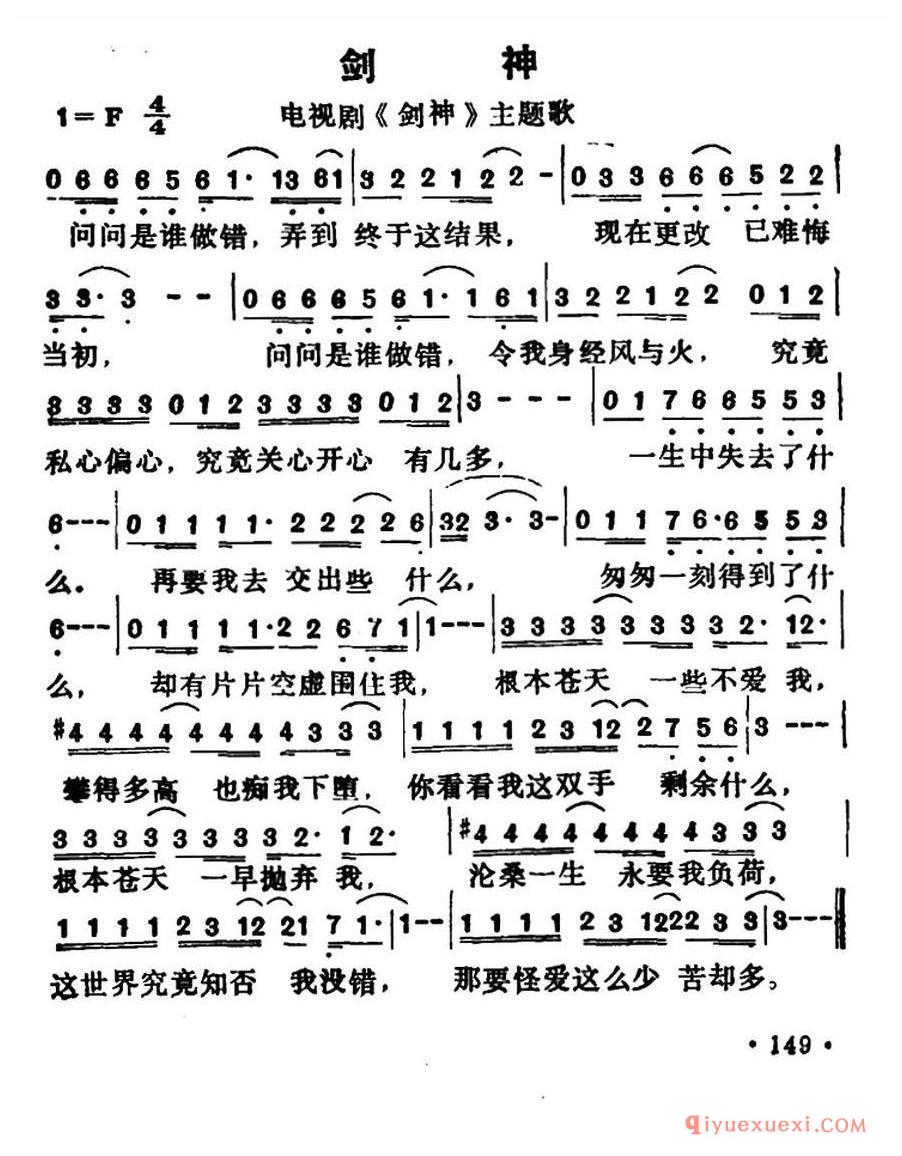 剑 神
1=F 4/4 电视剧《剑神》主题歌
0 6 6 6 5 6 1· 13 61 | 3 2 2 1 2 2 - | 0 3 3 6 6 6 5 2 2 |
问问是谁做错，弄到 终于这结果， 现在更改 已难悔
3 3· 3 - - | 0 6 6 6 5 6 1· 1 61 | 3 2 2 1 2 2 0 1 2 |
当初， 问问是谁做错，令我身经风与火， 究竟
3 3 3 3 0 1 2 3 3 3 3 0 1 2 | 3 - - - | 0 1 7 6 6 5 5 3 |
私心偏心，究竟关心开心 有几多， 一生中失去了什
6 - - - | 0 1 1 1 1· 2 2 2 2 2 6 | 32 3· 3 - | 0 1 1 7 6· 6 5 5 3 |
么。 再要我去 交出些 什么， 匆匆一刻得到了什
6 - - - | 0 1 1 1 1 1· 2 2 6 7 1 | 1 - - - | 3 3 3 3 3 3 3 3 2· 12· |
么， 却有片片空虚围住我， 根本苍天 一些不爱 我，
#4 4 4 4 4 4 4 4 3 3 3 | 1 1 1 1 2 3 12 2 7 5 6 | 3 - - - |
攀得多高 也痴我下堕，你看看我这双手 剩余什么，
3 3 3 3 3 3 3 3 2· 1 2· | #4 4 4 4 4 4 4 4 3 3 3
根本苍天 一早抛弃 我， 沧桑一生 永要我负荷，
1 1 1 1 2 3 12 21 7 1· | 1 - - | 1 1 1 1 2 3 1222 3 3 | 3 - - - ‖
这世界究竟知否 我没错， 那要怪爱这么少 苦却多。
· 149 ·
qiyuexuexi.com